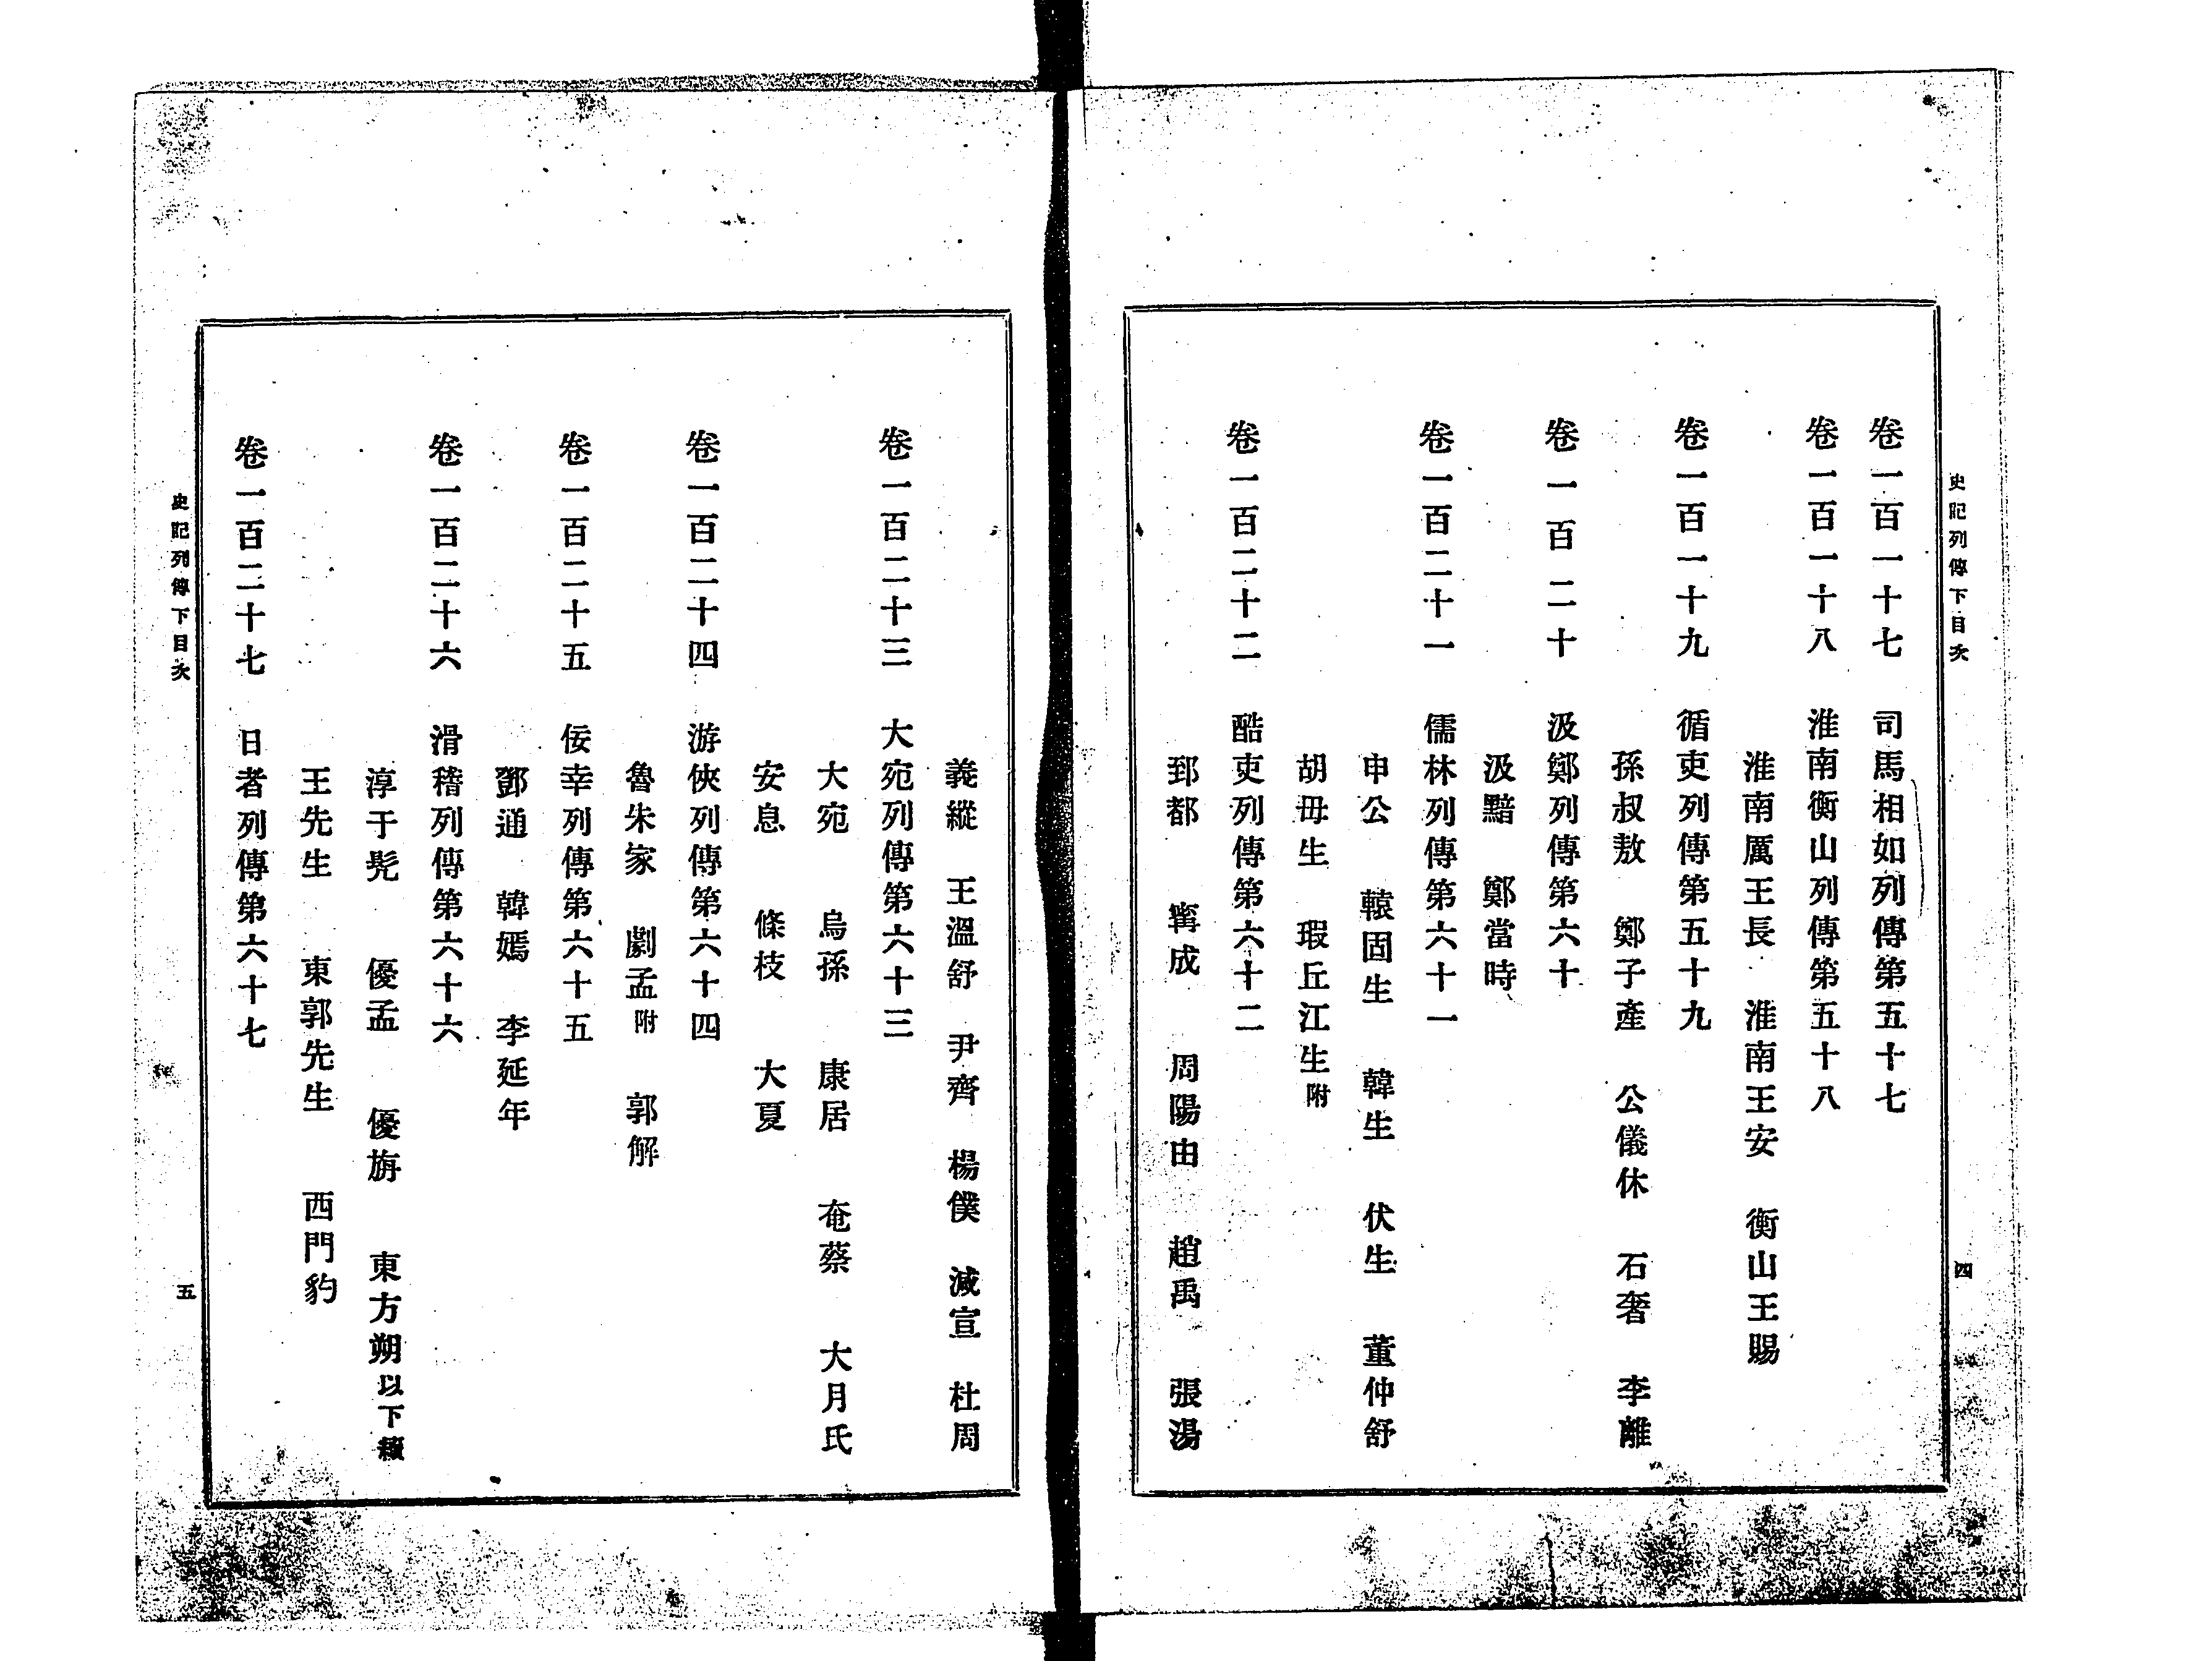 史記列傳下目次
四
卷一百一十七　司馬相如列傳第五十七
卷一百一十八　淮南衡山列傳第五十八
淮南厲王長　淮南王安　衡山王賜
卷一百一十九　循吏列傳第五十九
孫叔敖　鄭子產　公儀休　石奢　李離
卷一百二十　汲鄭列傳第六十
汲黯　鄭當時
卷一百二十一　儒林列傳第六十一
申公　轅固生　韓生　伏生　董仲舒
胡毋生　瑕丘江生附
卷一百二十二　酷吏列傳第六十二
郅都　甯成　周陽由　趙禹　張湯
義縱　王溫舒　尹齊　楊僕　減宣　杜周
卷一百二十三　大宛列傳第六十三
大宛　烏孫　康居　奄蔡　大月氏
安息　條枝　大夏
卷一百二十四　游俠列傳第六十四
魯朱家　劇孟附　郭解
卷一百二十五　佞幸列傳第六十五
鄧通　韓嫣　李延年
卷一百二十六　滑稽列傳第六十六
淳于髡　優孟　優旃　東方朔以下續
王先生　東郭先生　西門豹
卷一百二十七　日者列傳第六十七
史記列傳下目次
五